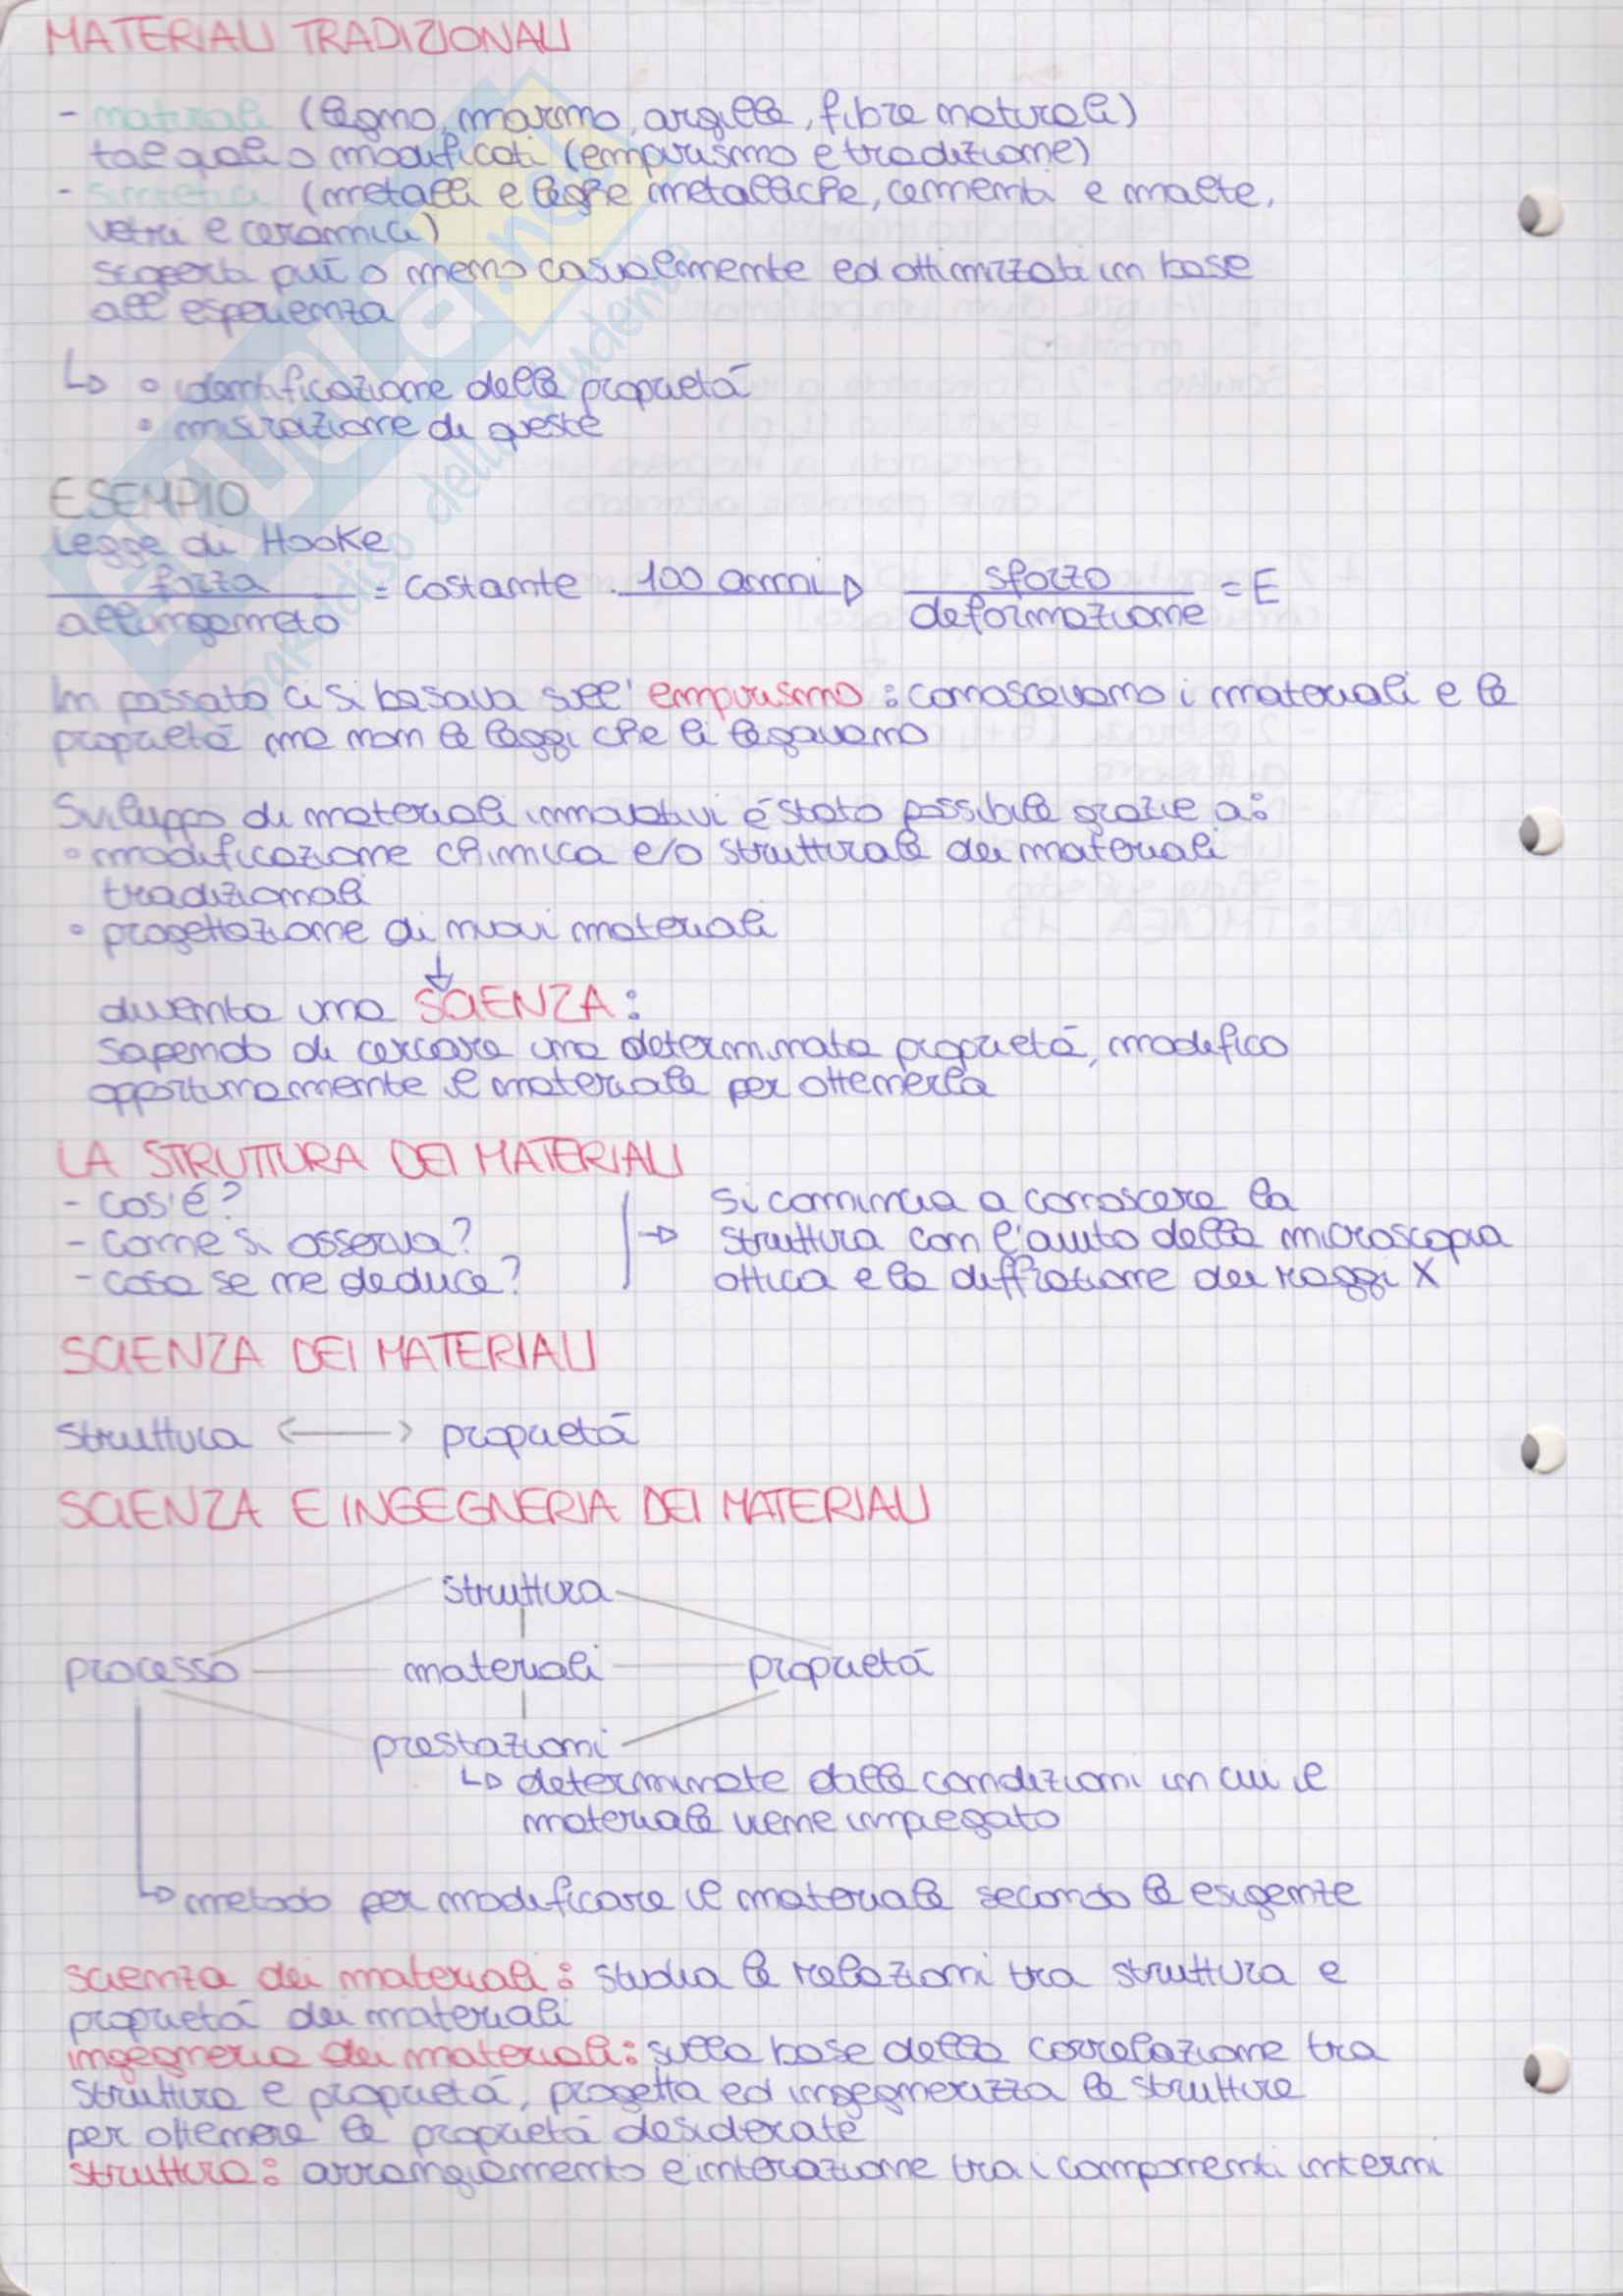 MATERIALI TRADIZIONALI
- naturali (legno, marmo, argille, fibre naturali)
tal quali o modificati (empirismo e tradizione)
- sintetici (metalli e leghe metalliche, cementi e malte,
vetri e ceramici)
scoperti più o meno casualmente ed ottimizzati in base
all'esperienza
↳ • identificazione delle proprietà
• misurazione di queste
ESEMPIO
Legge di Hooke
forza / allungamento = costante 100 anni ▷ sforzo / deformazione = E
In passato ci si basava sull'empirismo: conoscevano i materiali e le
proprietà ma non le leggi che li legavano
Sviluppo di materiali innovativi é stato possibile grazie a:
• modificazione chimica e/o strutturale dei materiali
tradizionali
• progettazione di nuovi materiali
↓
diventa una SCIENZA:
sapendo di cercare una determinata proprietà, modifico
opportunamente il materiale per ottenerla
LA STRUTTURA DEI MATERIALI
- cos'é?
- come si osserva?
- cosa se ne deduce?
→ si comincia a conoscere la
struttura con l'aiuto della microscopia
ottica e la diffrazione dei raggi X
SCIENZA DEI MATERIALI
struttura <—> proprietà
SCIENZA E INGEGNERIA DEI MATERIALI
struttura
processo materiali proprietà
prestazioni
↳ determinate dalle condizioni in cui il
materiale viene impiegato
↳ metodo per modificare il materiale secondo le esigenze
scienza dei materiali: studia le relazioni tra struttura e
proprietà dei materiali
ingegneria dei materiali: sulla base della correlazione tra
struttura e proprietà, progetta ed ingegnerizza le strutture
per ottenere le proprietà desiderate
struttura: arrangiamento e interazione tra i componenti interni